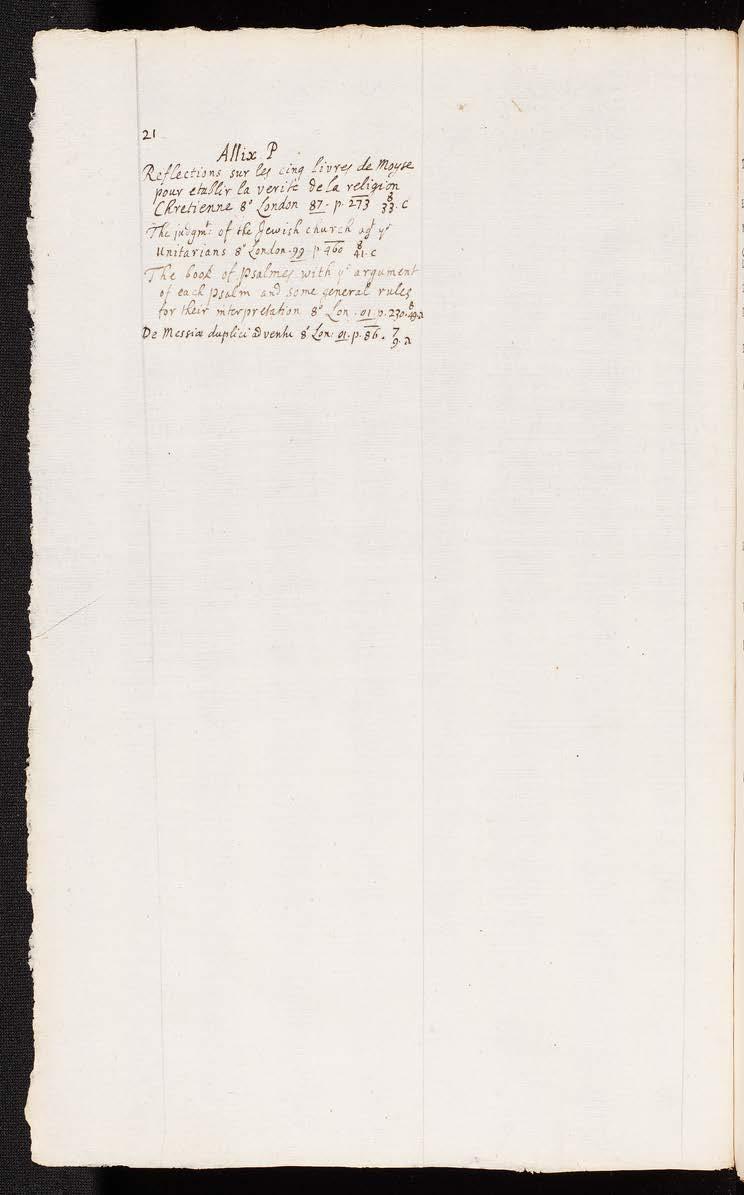 21
Allix P
Reflections sur les cinq livres de Moyse
pour etablir la verite de la religion
Chretienne 8° London 87. p. 273 8/33. c
The judgmt: of the Jewish church agt ye
Unitarians 8° London. 99 p 460 8/41. c
The book of psalmes with ye argument
of each psalm and some general rules
for their interpretation 8° Lon. 01. p. 230. 8/49.a
De Messiæ duplici adventu 8° Lon: 01. p. 86. 7/9. a